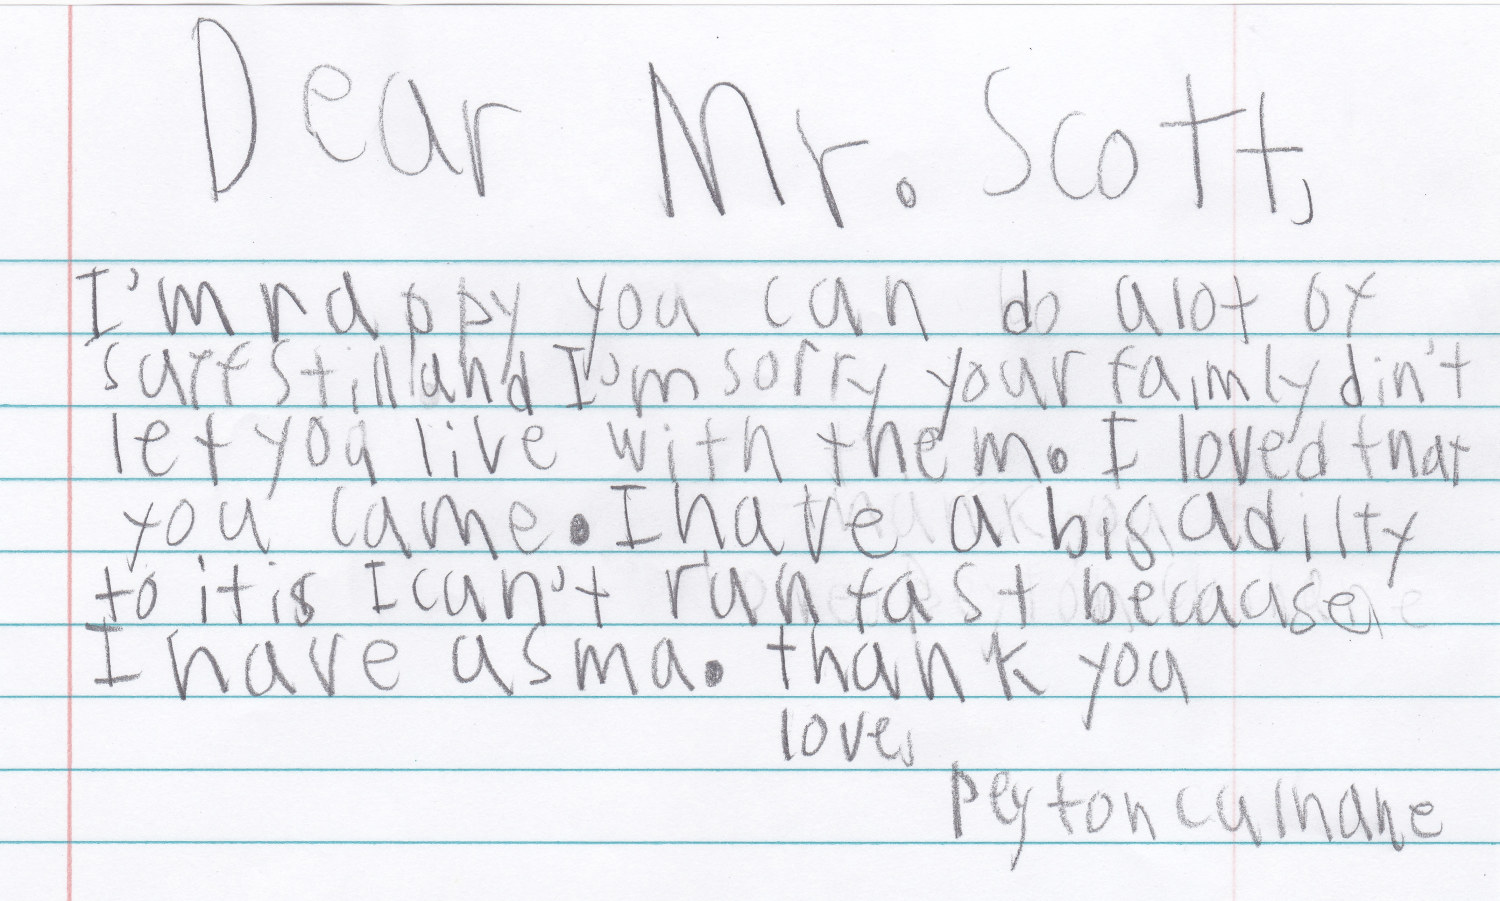 Dear Mr. Scott,
I'm happy you can do alot of
surf still and I'm sorry your faimly din't
let you live with them. I loved that
you came. I have a big adilty
to it is I can't run fast because
I have asma. thank you
love,
peyton culnane